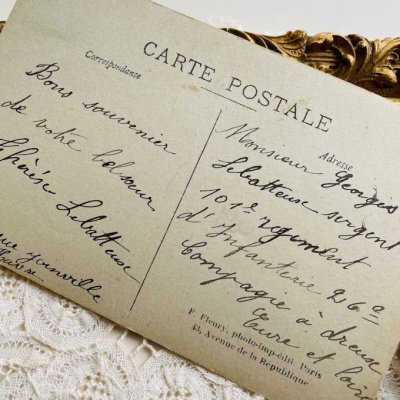 CARTE POSTALE
Correspondance
Bons souvenier
de votre belsœur
Thérèse Lebatteuse
rue Joinville
Adresse
Monsieur Georgis
Lebatteuse sergent
101e regiment
d'Infanterie 26e
Compagnie à dreux
Eure et loir
F. Fleury, photo-imp-édit Paris
43, Avenue de la République